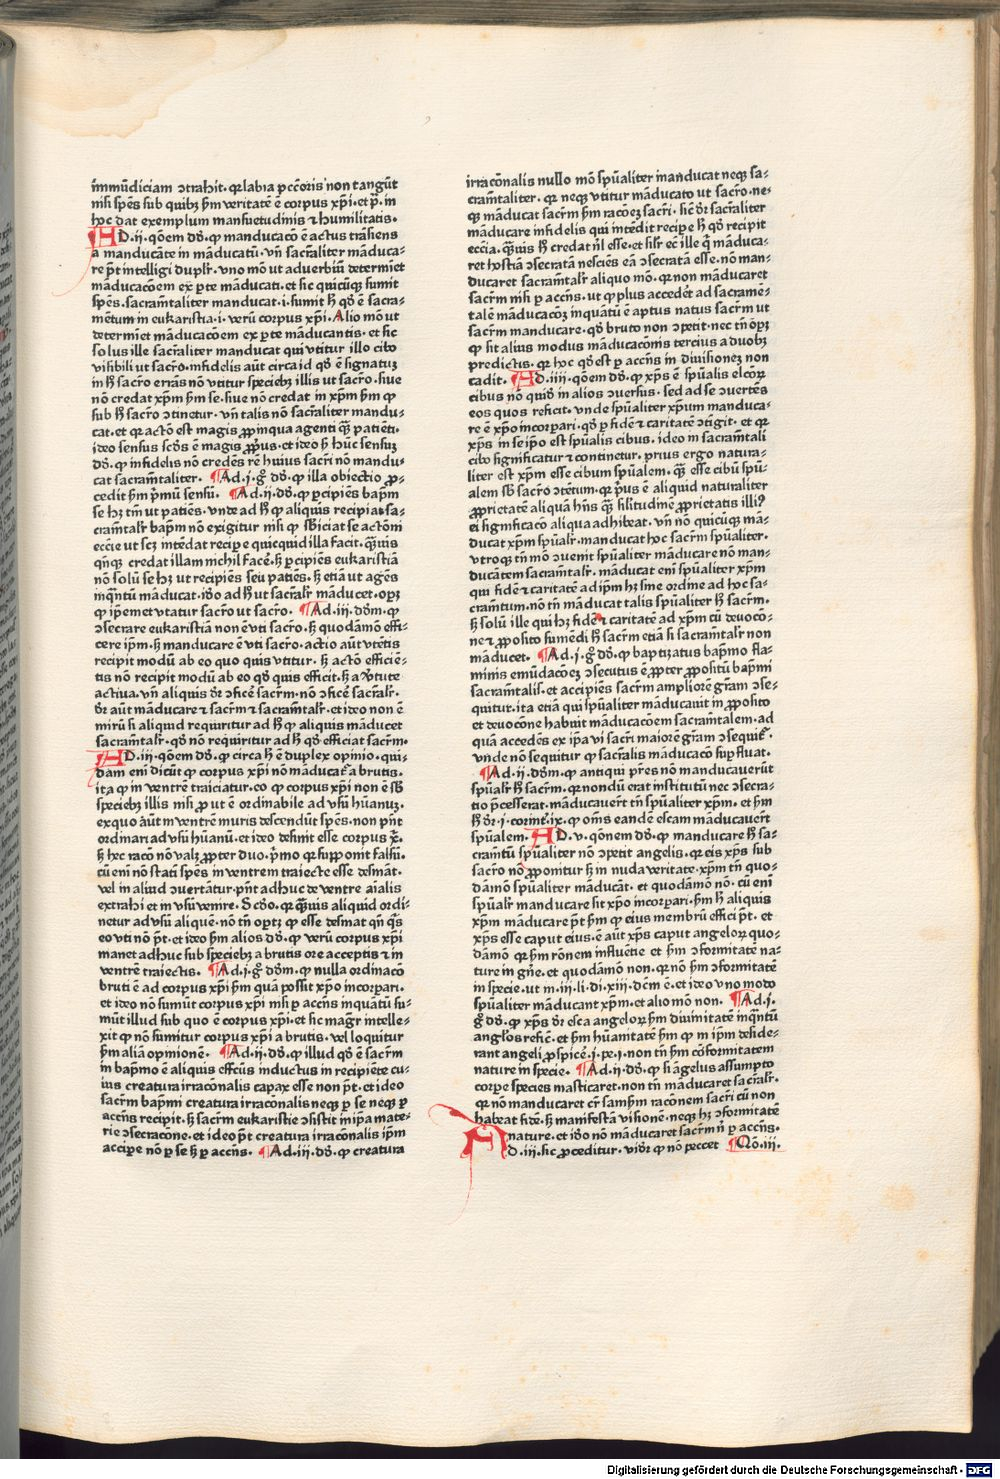 īmmūdiciam ꝯtrahit. qꝛ labia pctōris non tangūt
nisi spēs sub quibꝫ ẜm veritatē ē corpus xp̄i. et p̄t. in
hoc dat exemplum mansuetudinis ⁊ humilitatis.
AD .ii. qōem dō. ꝙ manducacō ē actus trāsiens
a manducāte in māducatū. vn̄ sacr̄aliter māduca⸗
re p̄t intelligi duplr̄. vno mō ut adverbiū determīet
māducacōem ex ꝑte māducati. et sic quicūqꝫ sumit
spēs. sacram̄taliter manducat .i. sumit ħ qō ē sacra⸗
mētum in eukaristia .i. verū corpus xp̄i. Alio mō ut
determīet māducacōem ex ꝑte māducantis. et sic
solus ille sacr̄aliter manducat qui vtitur illo cibo
visibili ut sacrō. infidelis aūt circa id qō ē signatuꝫ
in ħ sacrō errās nō vtitur speciebꝫ illis ut sacrō. siue
nō credat xp̄m ẜm se. siue nō credat in xp̄m ẜm ꝙ
sub ħ sacrō ꝯtinetur. vn̄ talis nō sacr̄aliter mandu⸗
cat. et qꝛ actō est magis ꝓpinqua agenti qᷓꝫ patiēti.
ideo sensus scd̄s ē magis ꝓprius. et ideo ẜm hūc sensuꝫ
dō. ꝙ infidelis nō credēs rē huius sacri nō mandu⸗
cat sacram̄taliter. ¶ Ad .i. gͦ dō. ꝙ illa obiectio ꝓ⸗
cedit ẜm p̄mū sensū. ¶ Ad .ii. dō. ꝙ ꝑcipiēs bap̄m
se hꝫ tm̄ ut patiēs. vnde ad ħ ꝙ aliquis recipiat sa⸗
cram̄talr̄ bap̄m nō exigitur nisi ꝙ sb̄iciat se actōni
eccīe ut scꝫ intēdat reciꝑe quicquid illa facit. qᷓꝫuis
qn̄qꝫ credat illam nichil facē. ẜꝫ ꝑcipiēs eukaristiā
nō solū se hꝫ ut recipiēs seu patiēs. ẜꝫ etiā ut agēs
inqᷓntū māducat. iō ad ħ ut sacr̄alr̄ māducet. oꝑꝫ
ꝙ ip̄emet vtatur sacrō ut sacrō. ¶ Ad .iii. dōm. ꝙ
ꝯsecrare eukaristiā non ē vti sacrō. ẜꝫ quodāmō effi⸗
cere ip̄m. ẜꝫ manducare ē vti sacrō. actio aūt vtētis
recipit modū ab eo quo quis vtitur. ẜꝫ actō efficiē⸗
tis nō recipit modū ab eo qō quis efficit. ẜꝫ a ṽtute
actiua. vn̄ aliquis dr̄ ꝯficē sacrm̄. nō ꝯficē sacr̄alr̄.
dr̄ aūt māducare ⁊ sacrm̄ ⁊ sacram̄talr̄. et ideo non ē
mirū si aliquid requiritur ad ħ ꝙ aliquis māducet
sacram̄talr̄. qō nō requiritur ad ħ qō efficiat sacrm̄.
AD .iii. qōnem dō. ꝙ circa ħ ē duplex opinio. qui⸗
dam enī dicūt ꝙ corpus xp̄i nō māducat̄ a brutis.
ita ꝙ in ventrē traiciatur. eo ꝙ corpus xp̄i non ē sb̄
speciebꝫ illis nisi ꝓ ut ē ordinabile ad vsū hūanuꝫ.
ex quo aūt in ventrē muris descendūt spēs. non pn̄t
ordinari ad vsū hūanū. et ideo desinit esse corpus xp̄i.
ẜꝫ hec racō nō valꝫ ꝓpter duo. p̄mo qꝛ supponit falsū.
cū enī nō stati spēs in ventrem traiecte esse desināt.
vel in aliud ꝯuertātur. pn̄t adhuc de ventre aīalis
extrahi et in vsū venire. Scd̄o. qꝛ qᷓꝫuis aliquid ordi⸗
netur ad vsū aliquē. nō tn̄ oꝑtꝫ ꝙ esse desinat qn̄ qͥs
eo vti nō p̄t. et ideo ẜm alios dō. ꝙ verū corpus xp̄i
manet adhuc sub speciebꝫ a brutis ore acceptis ⁊ in
ventrē traiectis. ¶ Ad .i. gͦ dōm. ꝙ nulla ordinacō
bruti ē ad corpus xp̄i ẜm quā possit xp̄o incorꝑari.
et ideo nō sumūt corpus xp̄i nisi ꝑ accn̄s inquātū su⸗
mūt illud sub quo ē corpus xp̄i. et sic magr̄ intelle⸗
xit ꝙ nō sumitur corpus xp̄i a brutis. vel loquitur
ẜm aliā opinionē. ¶ Ad .ii. dō. ꝙ illud qō ē sacrm̄
in bap̄mo ē aliquis effcūs inductus in recipiēte cu⸗
ius creatura irracōnalis capax esse non p̄t. et ideo
sacrm̄ bap̄mi creatura irracōnalis neqꝫ ꝑ se neqꝫ ꝑ
accn̄s recipit. ẜꝫ sacrm̄ eukaristie ꝯsistit in ip̄a mate⸗
rie ꝯsecracōne. et ideo p̄t creatura irracōnalis ip̄m
acciꝑe nō ꝑ se ẜꝫ ꝑ accn̄s. ¶ Ad .iii. dō. ꝙ creatura
irracōnalis nullo mō spūaliter manducat neqꝫ sa⸗
cram̄taliter. qꝛ neqꝫ vtitur māducato ut sacrō. ne⸗
qꝫ māducat sacrm̄ ẜm racōeꝫ sacri. sic dr̄ sacr̄aliter
māducare infidelis qui intēdit reciꝑe ħ qō recipit
eccīa. qᷓꝫuis ħ credat nl̄ esse. et silr̄ etc̄ ille qͥ māduca⸗
ret hostiā ꝯsecratā nesciēs eā ꝯsecratā esse. nō man⸗
ducaret sacram̄talr̄ aliquo mō. qꝛ non māducaret
sacrm̄ nisi ꝑ accn̄s. ut ꝙ plus accedēt ad sacramē⸗
talē māducacōꝫ inquātū ē aptus natus sacrm̄ ut
sacrm̄ manducare. qō bruto non ꝯpetit. nec tn̄ oꝑꝫ
ꝙ sit alius modus māducacōnis tercius a duobꝫ
predictis. qꝛ hoc qō est ꝑ accn̄s in diuisionez non
cadit. ¶ AD .iiii. qōnem dō. ꝙ xp̄s ē spūalis el cōr⸗
cibus nō quidē in alios ꝯuersus. sed ad se ꝯuertēs
eos quos reficit. vnde spūaliter xp̄um manduca⸗
re ē xp̄o incorꝑari. qō ꝑ fidē ⁊ caritatē ꝯtigit. et qꝛ
xp̄s in seip̄o est spūalis cibus. ideo in sacram̄tali
cibo significatur ⁊ continetur. prius ergo natura⸗
liter est xp̄m esse cibum spūalem. qᷓꝫ esse cibū spū⸗
alem sb̄ sacrō ꝯtētum. qꝛ pͥus ē aliquid naturaliter
ꝓprietatē aliquā hn̄s qᷓꝫ silitudinē ꝓprietatis illiꝰ
ei significacō aliqua adhibeat. vn̄ nō quicūqꝫ mā⸗
ducat xp̄m spūalr̄. manducat hoc sacrm̄ spūaliter.
vtroqꝫ tn̄ mō ꝯuenit spūaliter māducare nō man⸗
ducātem sacram̄talr̄. māducat enī spūaliter xp̄m
qui fidē ⁊ caritatē ad ip̄m hꝫ sine ordine ad hoc sa⸗
cram̄tum. nō tn̄ māducat talis spūaliter ħ sacrm̄.
ẜꝫ solū ille qui hꝫ fidē ⁊ caritatē ad xp̄m cū deuocō⸗
ne ⁊ ꝓposito sumēdi ħ sacrm̄ etiā si sacram̄talr̄ non
māducet. ¶ Ad .i. gͦ dō. ꝙ baptizatus bap̄mo fla⸗
minis emūdacōeꝫ ꝯsecutus ē ꝓpter ꝓpositū bap̄mi
sacram̄talis. et accipiēs sacrm̄ ampliorē gr̄am ꝯse⸗
quitur. ita etiā qui spūaliter māducauit in ꝓposito
et deuocōne habuit māducacōem sacram̄talem. ad
quā accedēs ex ip̄a vi sacri maiorē gr̄am ꝯsequit̄.
vnde nō sequitur ꝙ sacr̄alis māducacō suꝑfluat.
¶ Ad .ii. dōm. ꝙ antiqui pr̄es nō manducauerūt
spūalr̄ ħ sacrm̄. qꝛ nondū erat institutū nec ꝯsecra⸗
tio p̄cesserat. māducauerūt tn̄ spūaliter xp̄m. et ẜm
ħ dr̄ .i. corint̄. ix. ꝙ om̄s eandē escam māducauerūt
spūalem. AD .v. qōnem dō. ꝙ manducare ħ sa⸗
cram̄tū spūaliter nō ꝯpetit angelis. qꝛ eis xp̄s sub
sacrō nō ꝓponitur ẜꝫ in nuda veritate. xp̄m tn̄ quo⸗
dāmō spūaliter māducāt. et quodāmō nō. cū enī
spūalr̄ manducare sit xp̄o incorꝑari. ẜm ħ aliquis
xp̄m māducare p̄t ẜm ꝙ eius membrū effici p̄t. et
xp̄s esse caput eius. ē aūt xp̄s caput angeloꝝ quo⸗
dāmō qꝛ ẜm rōnem influētie et ẜm ꝯformitatē na⸗
ture in gn̄e. et quodāmō non. qꝛ nō ẜm ꝯformitatē
in specie. ut in .iii. li. di. xiii. dcm̄ ē. et ideo vno modo
spūaliter māducant xp̄m. et alio mō non. ¶ Ad .i.
gͦ dō. ꝙ xp̄s dr̄ esca angeloꝝ ẜm diuinitatē inqᷓntū
angl̄os reficit. et ẜm hūanitatē ẜm ꝙ in ip̄m deside⸗
rant angeli ꝓspicē .i. pe. i. non tn̄ ẜm cōformitatem
nature in specie. ¶ Ad .ii. dō. ꝙ si āgelus assumpto
corꝑe species masticaret. non tn̄ māducaret sacr̄alr̄.
qꝛ nō manducaret sacrm̄ ẜm racōnem sacri cū non
habeat fidē. ẜꝫ manifestā visionē. neqꝫ hꝫ ꝯformitatē
nature. et iō nō māducaret sacrm̄ nͥ ꝑ accn̄s.
AD .iii. sic ꝓceditur. vidr̄ ꝙ nō peccet ¶ Qō .iii.
Digitalisierung gefördert durch die Deutsche Forschungsgemeinschaft - DFG